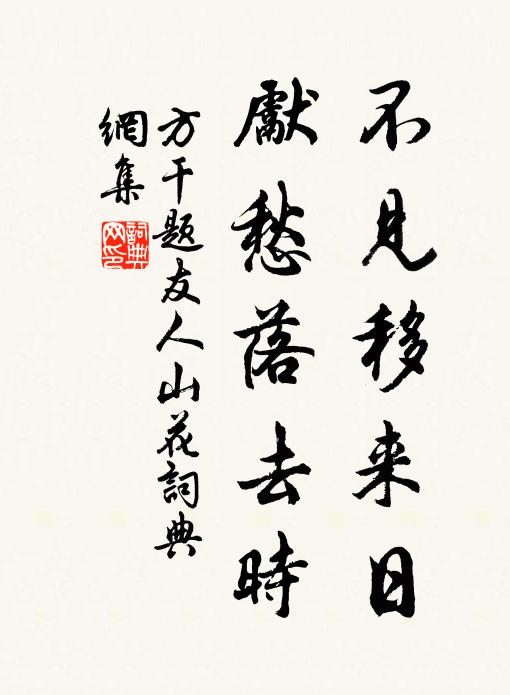 不見移来日
獻愁落去時
方干题友人山花詞典
網集
詞典
网印